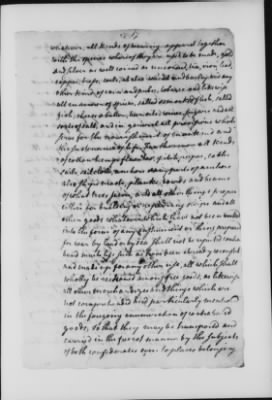 whatever, all kinds of wearing apparel together
with the species whereof they are used to be made, gold
and silver as well coined as uncoined, tin, iron, lead,
copper, brass, coals, as also wheat and barley and any
other kind of corn and pulse, tobacco and likewise
all manner of spices, salted and smoked flesh, salted
fish, cheese and butter, beer, oils, wines, sugars and all
sorts of salt, and in general all provisions which
serve for the nourishment of mankind and
the sustenance of life. Furthermore all kinds
of cotton, hemp, flax, tar, pitch, ropes, cables,
sails, sail cloths, anchors and any parts of anchors
also ships masts, planks, boards and beams
of what trees soever, and all other things proper
either for building or repairing ships and all
other goods whatever which have not been worked
into the form of any instrument or thing prepared
for war by land or by sea shall not be reputed contra-
band much less such as have been already wrought
and made up for any other use, all which shall
wholly be reckoned among free goods, as likewise
all other merchandizes and things which are
not comprehended and particularly mention'd
in the foregoing enumeration of contraband
goods, so that they may be transported and
carried in the freest manner by the subjects
of both confederates even to places belonging